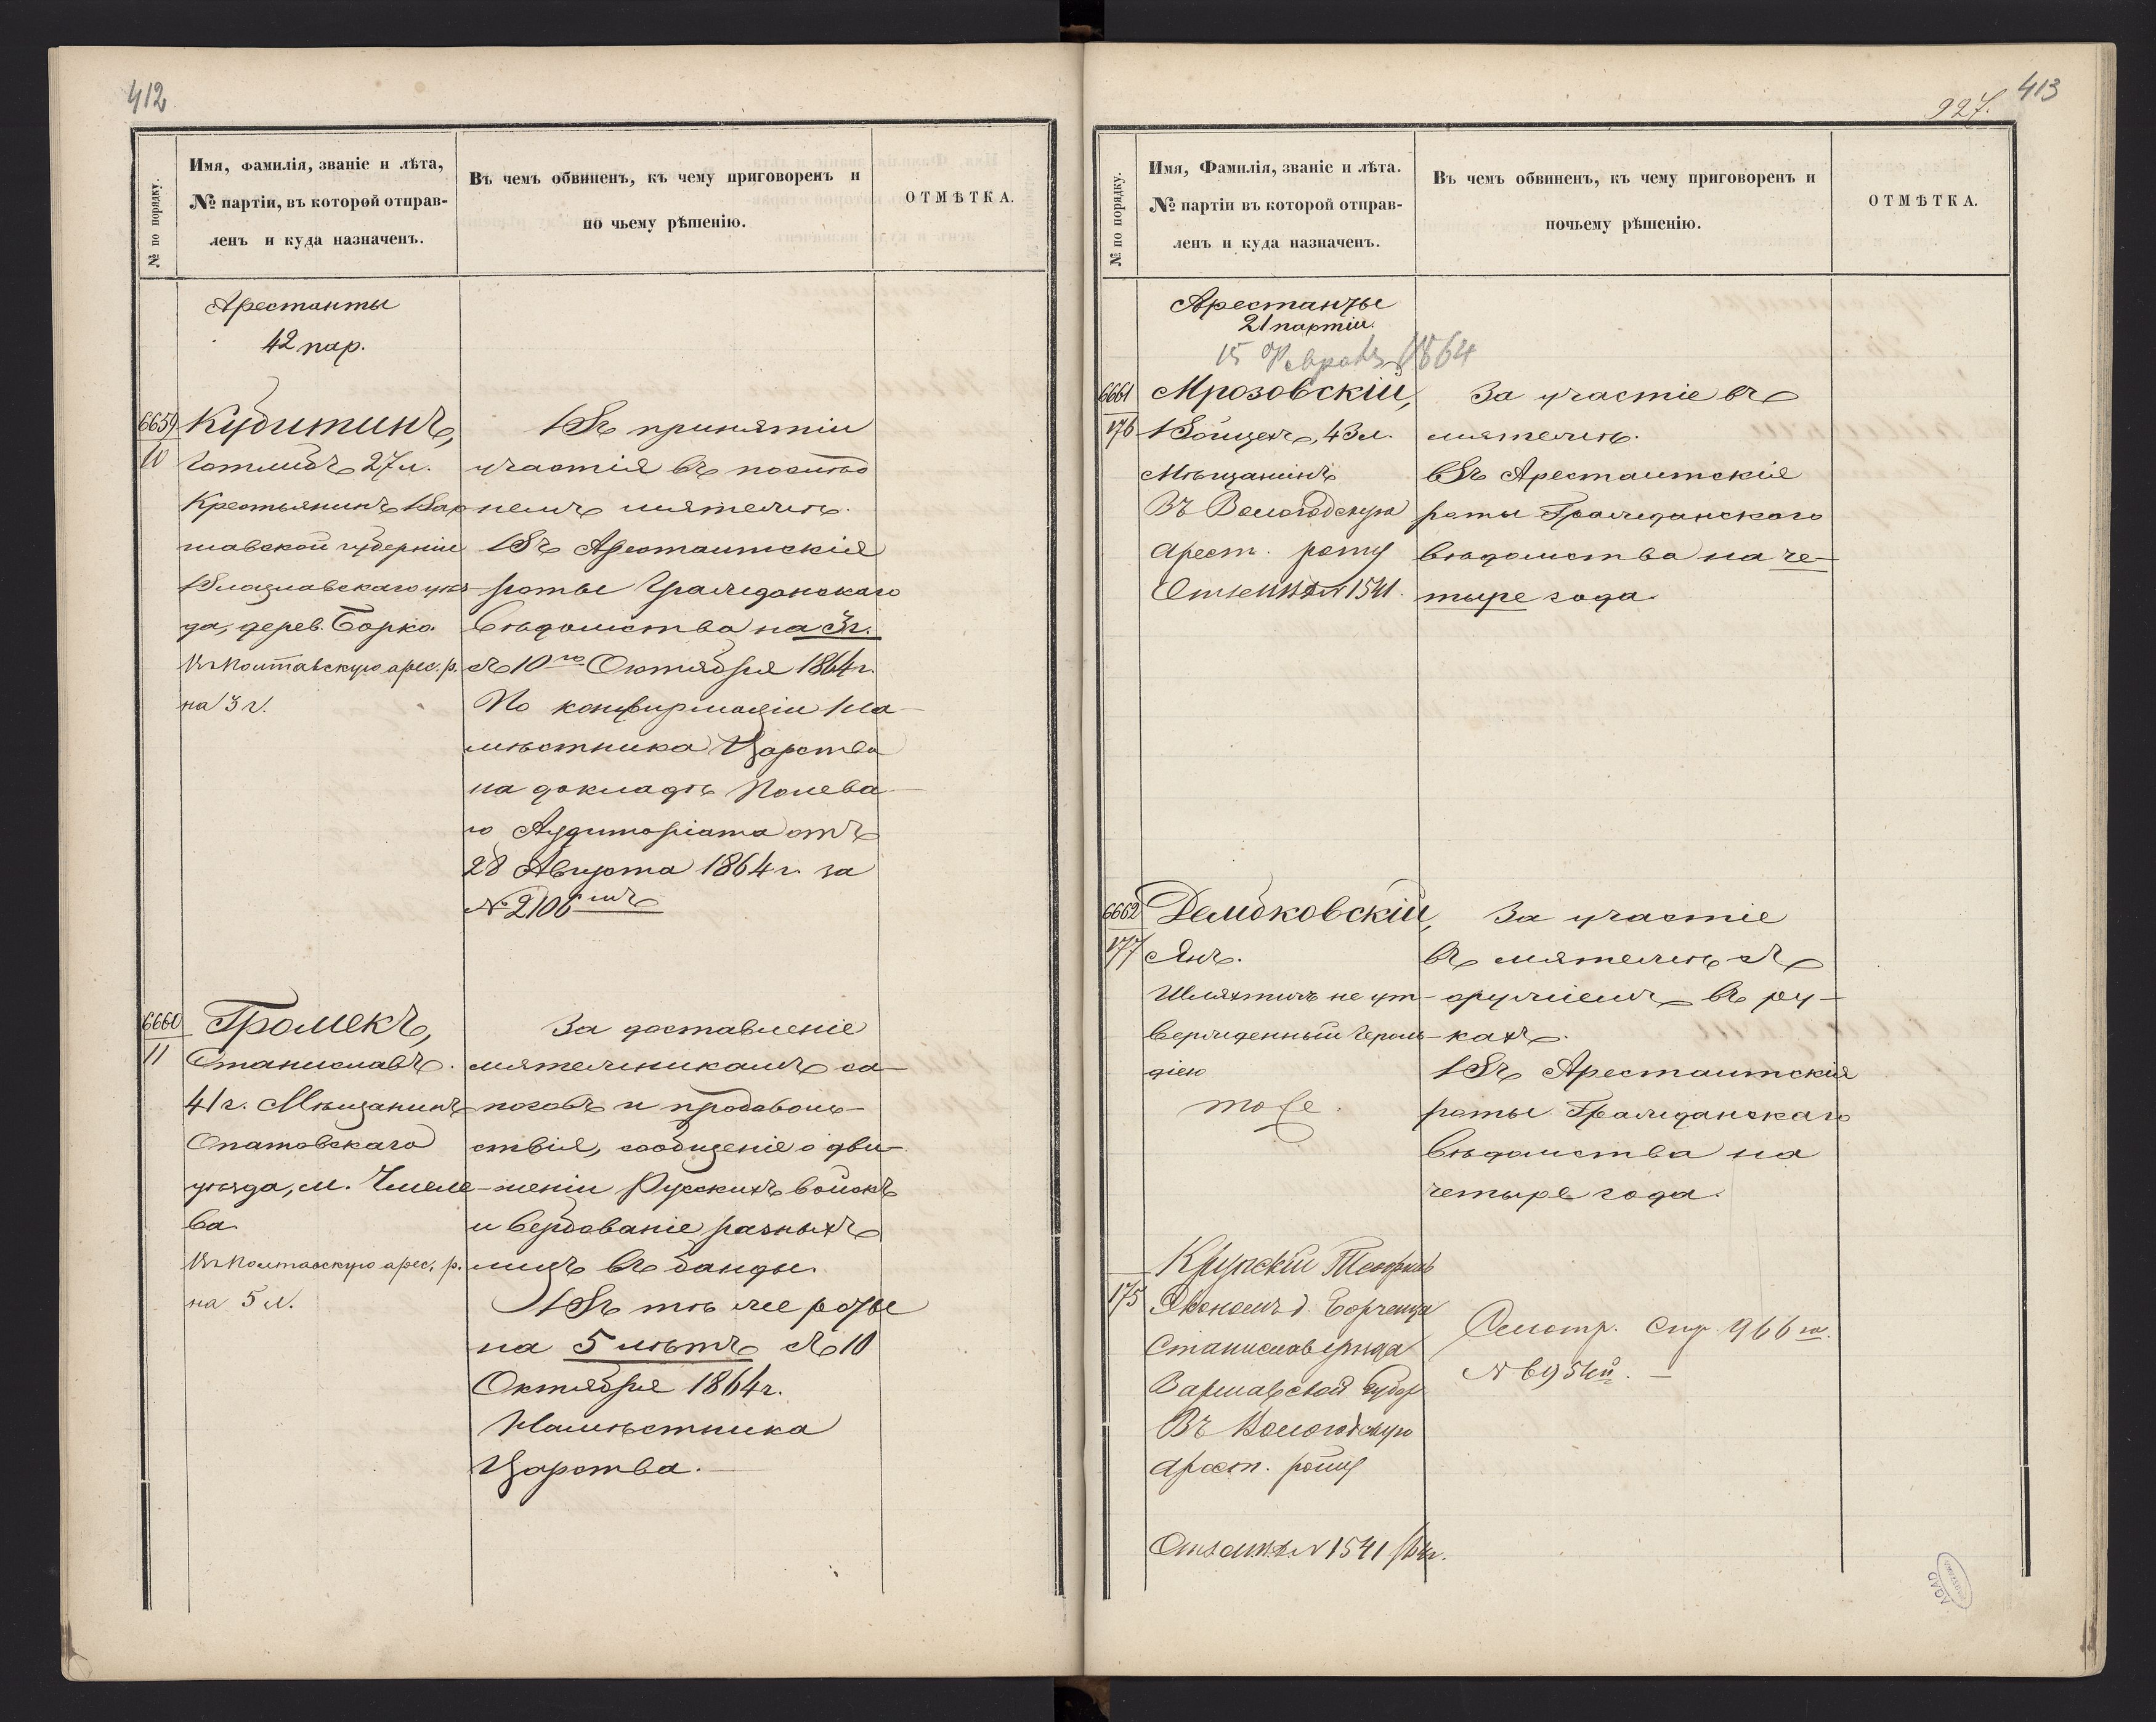 412
№ по порядку.
Имя, фамилія, званіе и лѣта,
№ партіи, въ которой отправ-
ленъ и куда назначенъ.
Въ чемъ обвиненъ, къ чему приговоренъ и
по чьему рѣшенію.
ОТМѢТКА.
Арестанты
42 пар.
6659
10
Кубитинъ,
Готлибъ 27 л.
Крестьянинъ Вар
шавской губерніи
Влацлавскаго уѣз
да, дерев. Борко.
Въ Полтавскую арес. р.
на 3 г.
Въ принятіи
участія въ послѣд
немъ мятежѣ.
Въ Арестантскія
роты Гражданскаго
Вѣдомства на 3 г.
съ 10го Октября 1864 г.
По конфирмаціи На-
мѣстника Царства
на докладѣ Полева-
го Аудиторіата отъ
28 Августа 1864 г. за
№ 2106мъ
6660
11
Громекъ,
Станиславъ.
41 г. Мѣщанинъ
Опатовскаго
уѣзда, м. Чмеле
ва.
Въ Полтавскую арес. р.
на 5 л.
За доставленіе
мятежникамъ са-
поговъ и продоволь-
ствія, сообщеніе о дви-
женіи Русскихъ войскъ
и вербованіе разныхъ
лицъ въ банды.
Въ тѣ же роты
на 5 лѣтъ съ 10
Октября 1864 г.
Намѣстника
Царства.
413
927.
№ по порядку.
Имя, Фамилія, званіе и лѣта.
№ партіи въ которой отправ-
ленъ и куда назначенъ.
Въ чемъ обвиненъ, къ чему приговоренъ и
почьему рѣшенію.
ОТМѢТКА.
Арестанты
21 партіи.
15 Февраля 1864
6661
176
Мрозовскій,
Войцехъ, 43 л.
Мѣщанинъ
Въ Вологодскую
Арест. роту
№ 1541.
За участіе въ
мятежѣ.
Въ Арестантскія
роты Гражданскаго
вѣдомства на че-
тыре года.
6662
177
Дембковскій,
Янъ.
Шляхтичъ не ут-
вержденный Героль-
діею
тоже.
За участіе
въ мятежѣ съ
оружіемъ въ ру-
кахъ.
Въ Арестантскія
роты Гражданскаго
вѣдомства на
четыре года.
175
Крупскій Теофиль
Экономъ д.
Станиславъ уѣзда
Варшавской Губер
Въ Вологодскую
Арест. роту
№ 1541 /64 г.
Смотр. Стр. 966 ю.
№ 6954й. —
AGAD